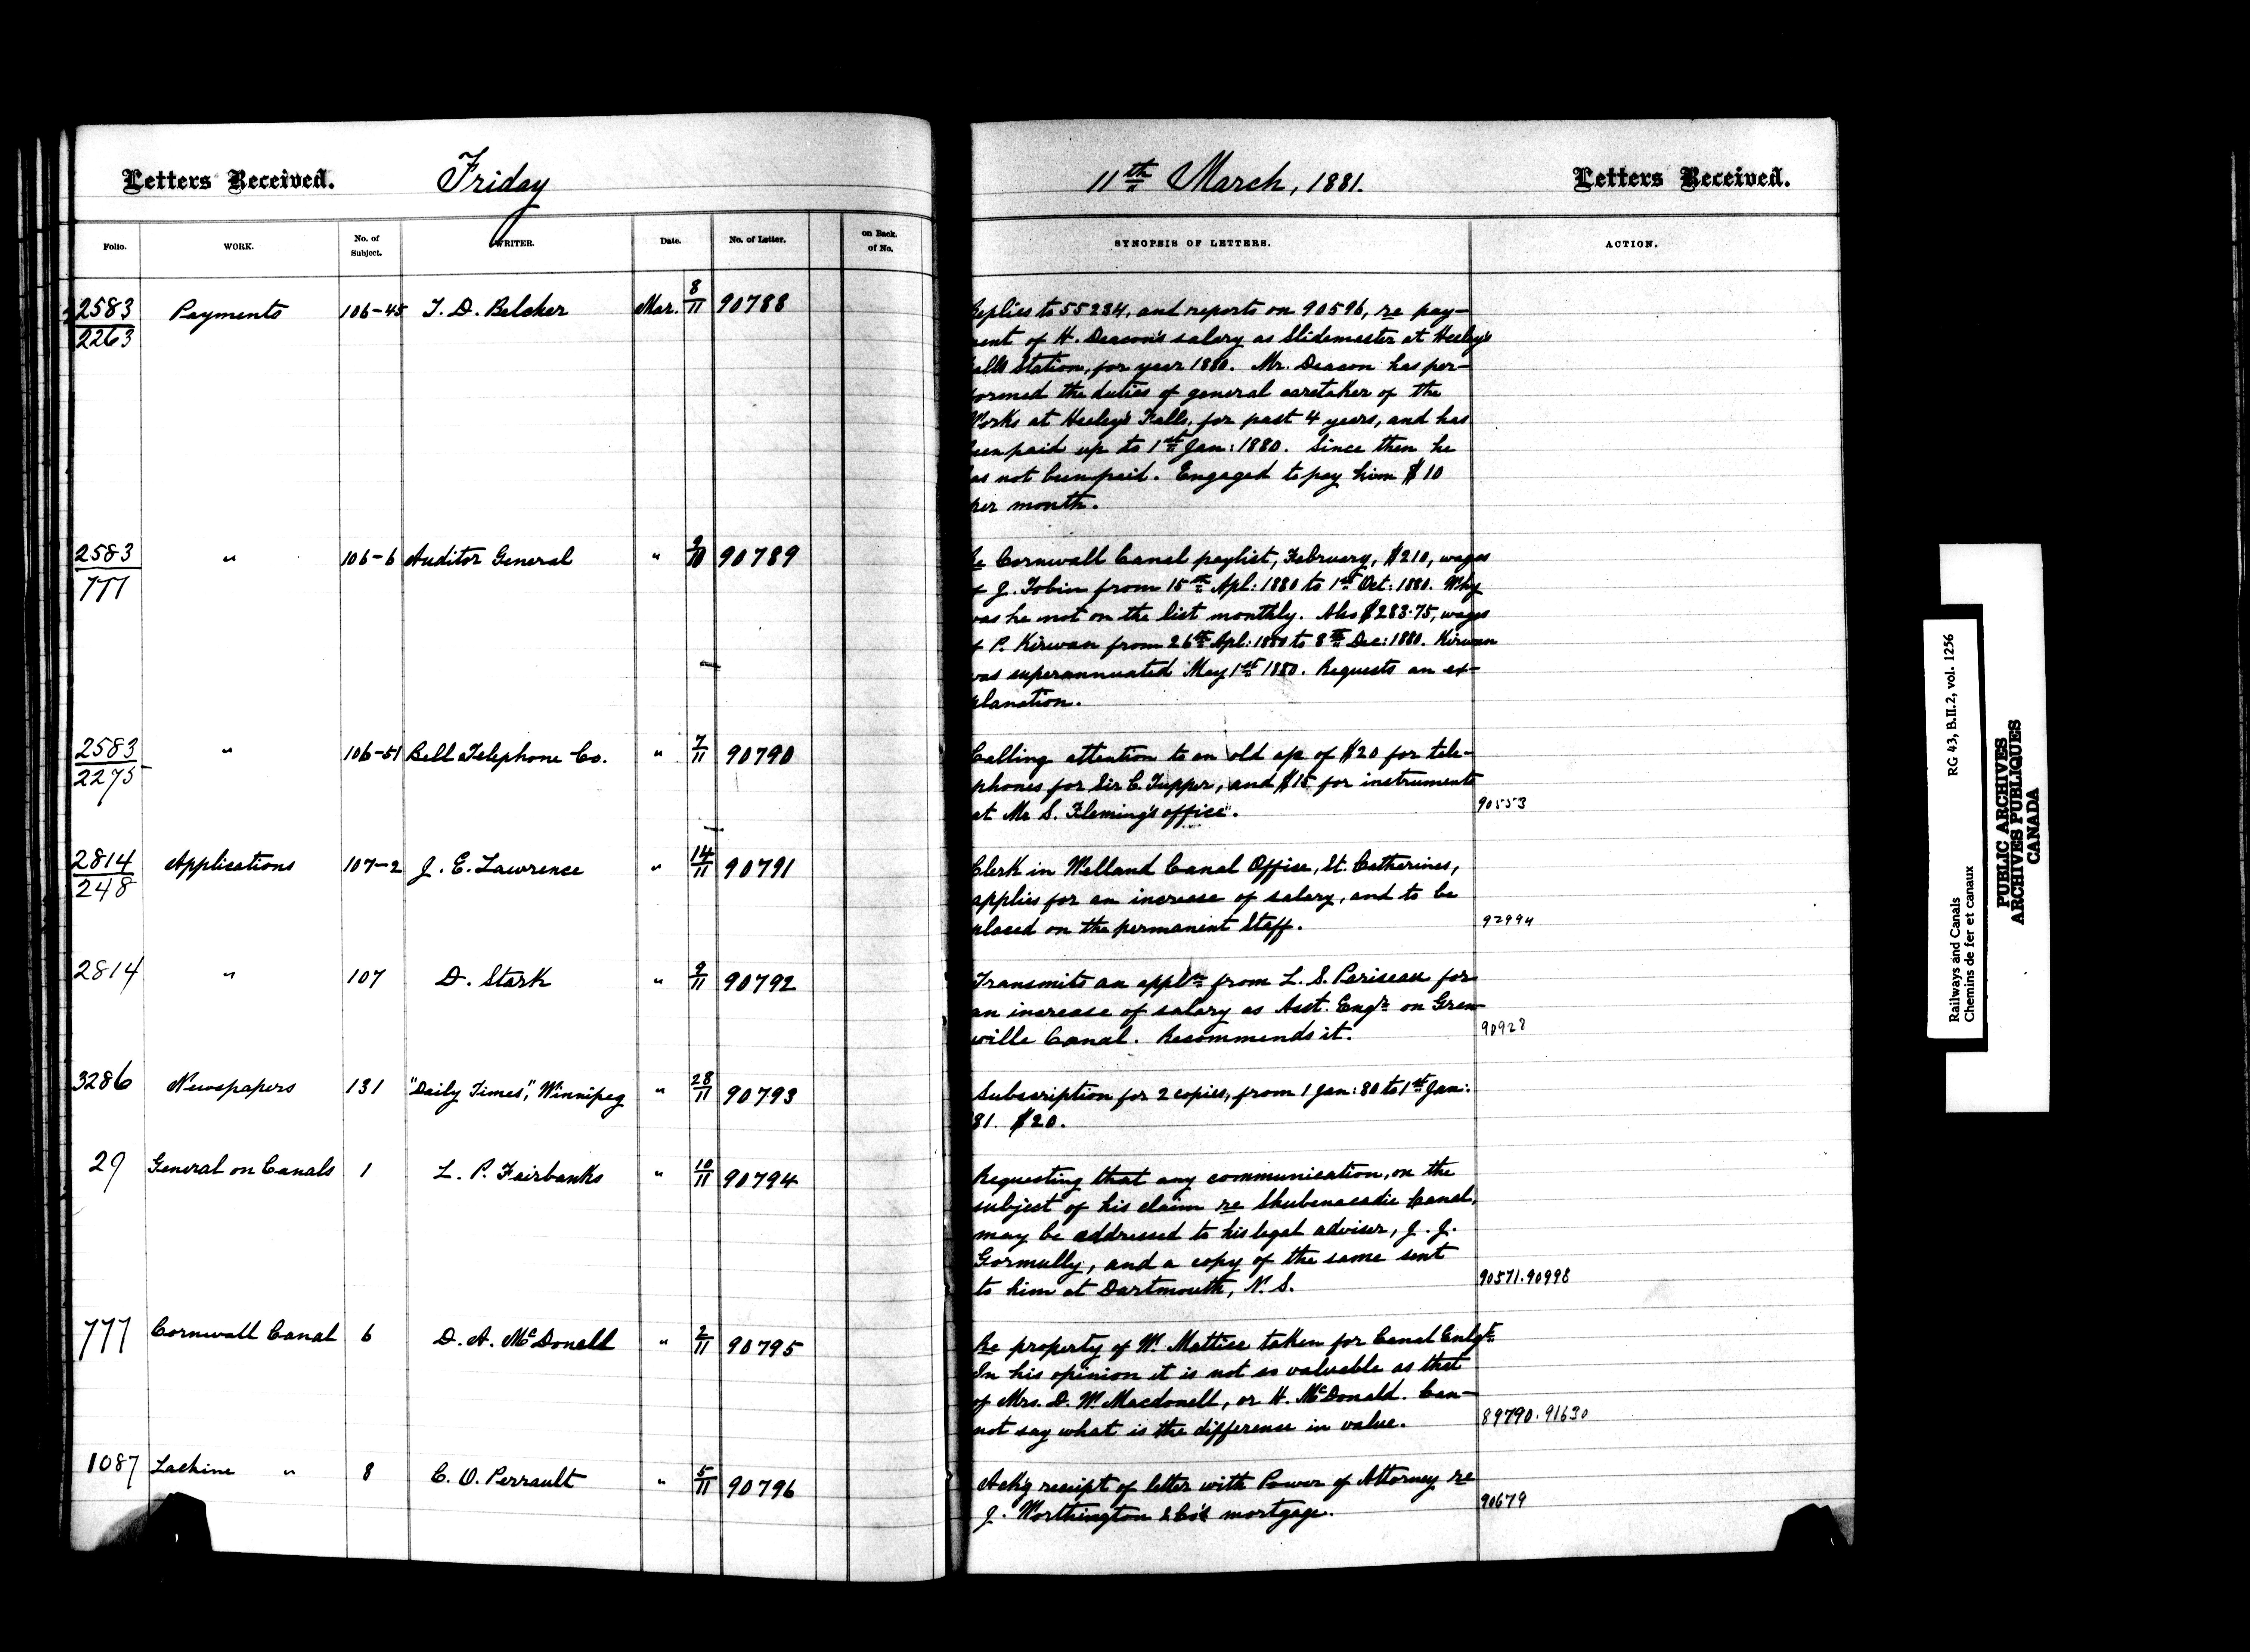 Letters Received.
Friday
11th March, 1881.
Letters Received.
Folio.
WORK.
No. of Subject.
WRITER.
Date.
No. of Letter.
on Back of No.
SYNOPSIS OF LETTERS.
ACTION.
2583
2263
Payments
106-45
T. D. Belcher
Mar. 8/11
90788
Replies to 55234, and reports on 90596, re pay-
ment of H. Deacon's salary as Slidemaster at Heeley's
Falls Station, for year 1880. Mr. Deacon has per-
formed the duties of general caretaker of the
Works at Heeley's Falls, for past 4 years, and has
been paid up to 1st Jan: 1880. Since then he
has not been paid. Engaged to pay him $10
per month.
2583
777
"
106-6
Auditor General
" 9/10
90789
Re Cornwall Canal paylist, February, $210, wages
of J. Tobin from 15th Apl: 1880 to 1st Oct: 1880. Why
was he not on the list monthly. Also $283.75, wages
of P. Kirwan from 26th Apl: 1880 to 8th Dec: 1880. Kirwan
was superannuated May 1st 1880. Requests an ex-
planation.
2583
2275
"
106-51
Bell Telephone Co.
" 7/11
90790
Calling attention to an old a/c of $20 for tele-
phones for Sir C Tupper, and $15 for instruments
at Mr S. Fleming's office".
90553
2814
248
Applications
107-2
J. E. Lawrence
" 14/11
90791
Clerk in Welland Canal Office, St. Catherines,
applies for an increase of salary, and to be
placed on the permanent Staff.
92994
2814
"
107
D. Stark
" 9/11
90792
Transmits an appln from L. S. Pariseau for
an increase of salary as Asst. Engr on Gren-
ville Canal. Recommends it.
90928
3286
Newspapers
131
"Daily Times", Winnipeg
" 28/11
90793
Subscription for 2 copies, from 1 Jan: 80 to 1st Jan:
81. $20.
29
General on Canals
1
L. P. Fairbanks
" 10/11
90794
Requesting that any communication, on the
subject of his claim re Shubenacadie Canal,
may be addressed to his legal adviser, J. J.
Gormully, and a copy of the same sent
to him at Dartmouth, N. S.
90571.90998
777
Cornwall Canal
6
D. A. McDonell
" 2/11
90795
Re property of W. Mattice taken for Canal Enlgt
In his opinion it is not as valuable as that
of Mrs. D. W. Macdonell, or H. McDonald. Can-
not say what is the difference in value.
89790.91630
1087
Lachine "
8
C. O. Perrault
" 5/11
90796
Ackg receipt of letter with Power of Attorney re
J. Worthington & Co's mortgage.
90679
Railways and Canals
Chemins de fer et canaux
RG 43, B.II.2, vol. 1256
PUBLIC ARCHIVES
ARCHIVES PUBLIQUES
CANADA